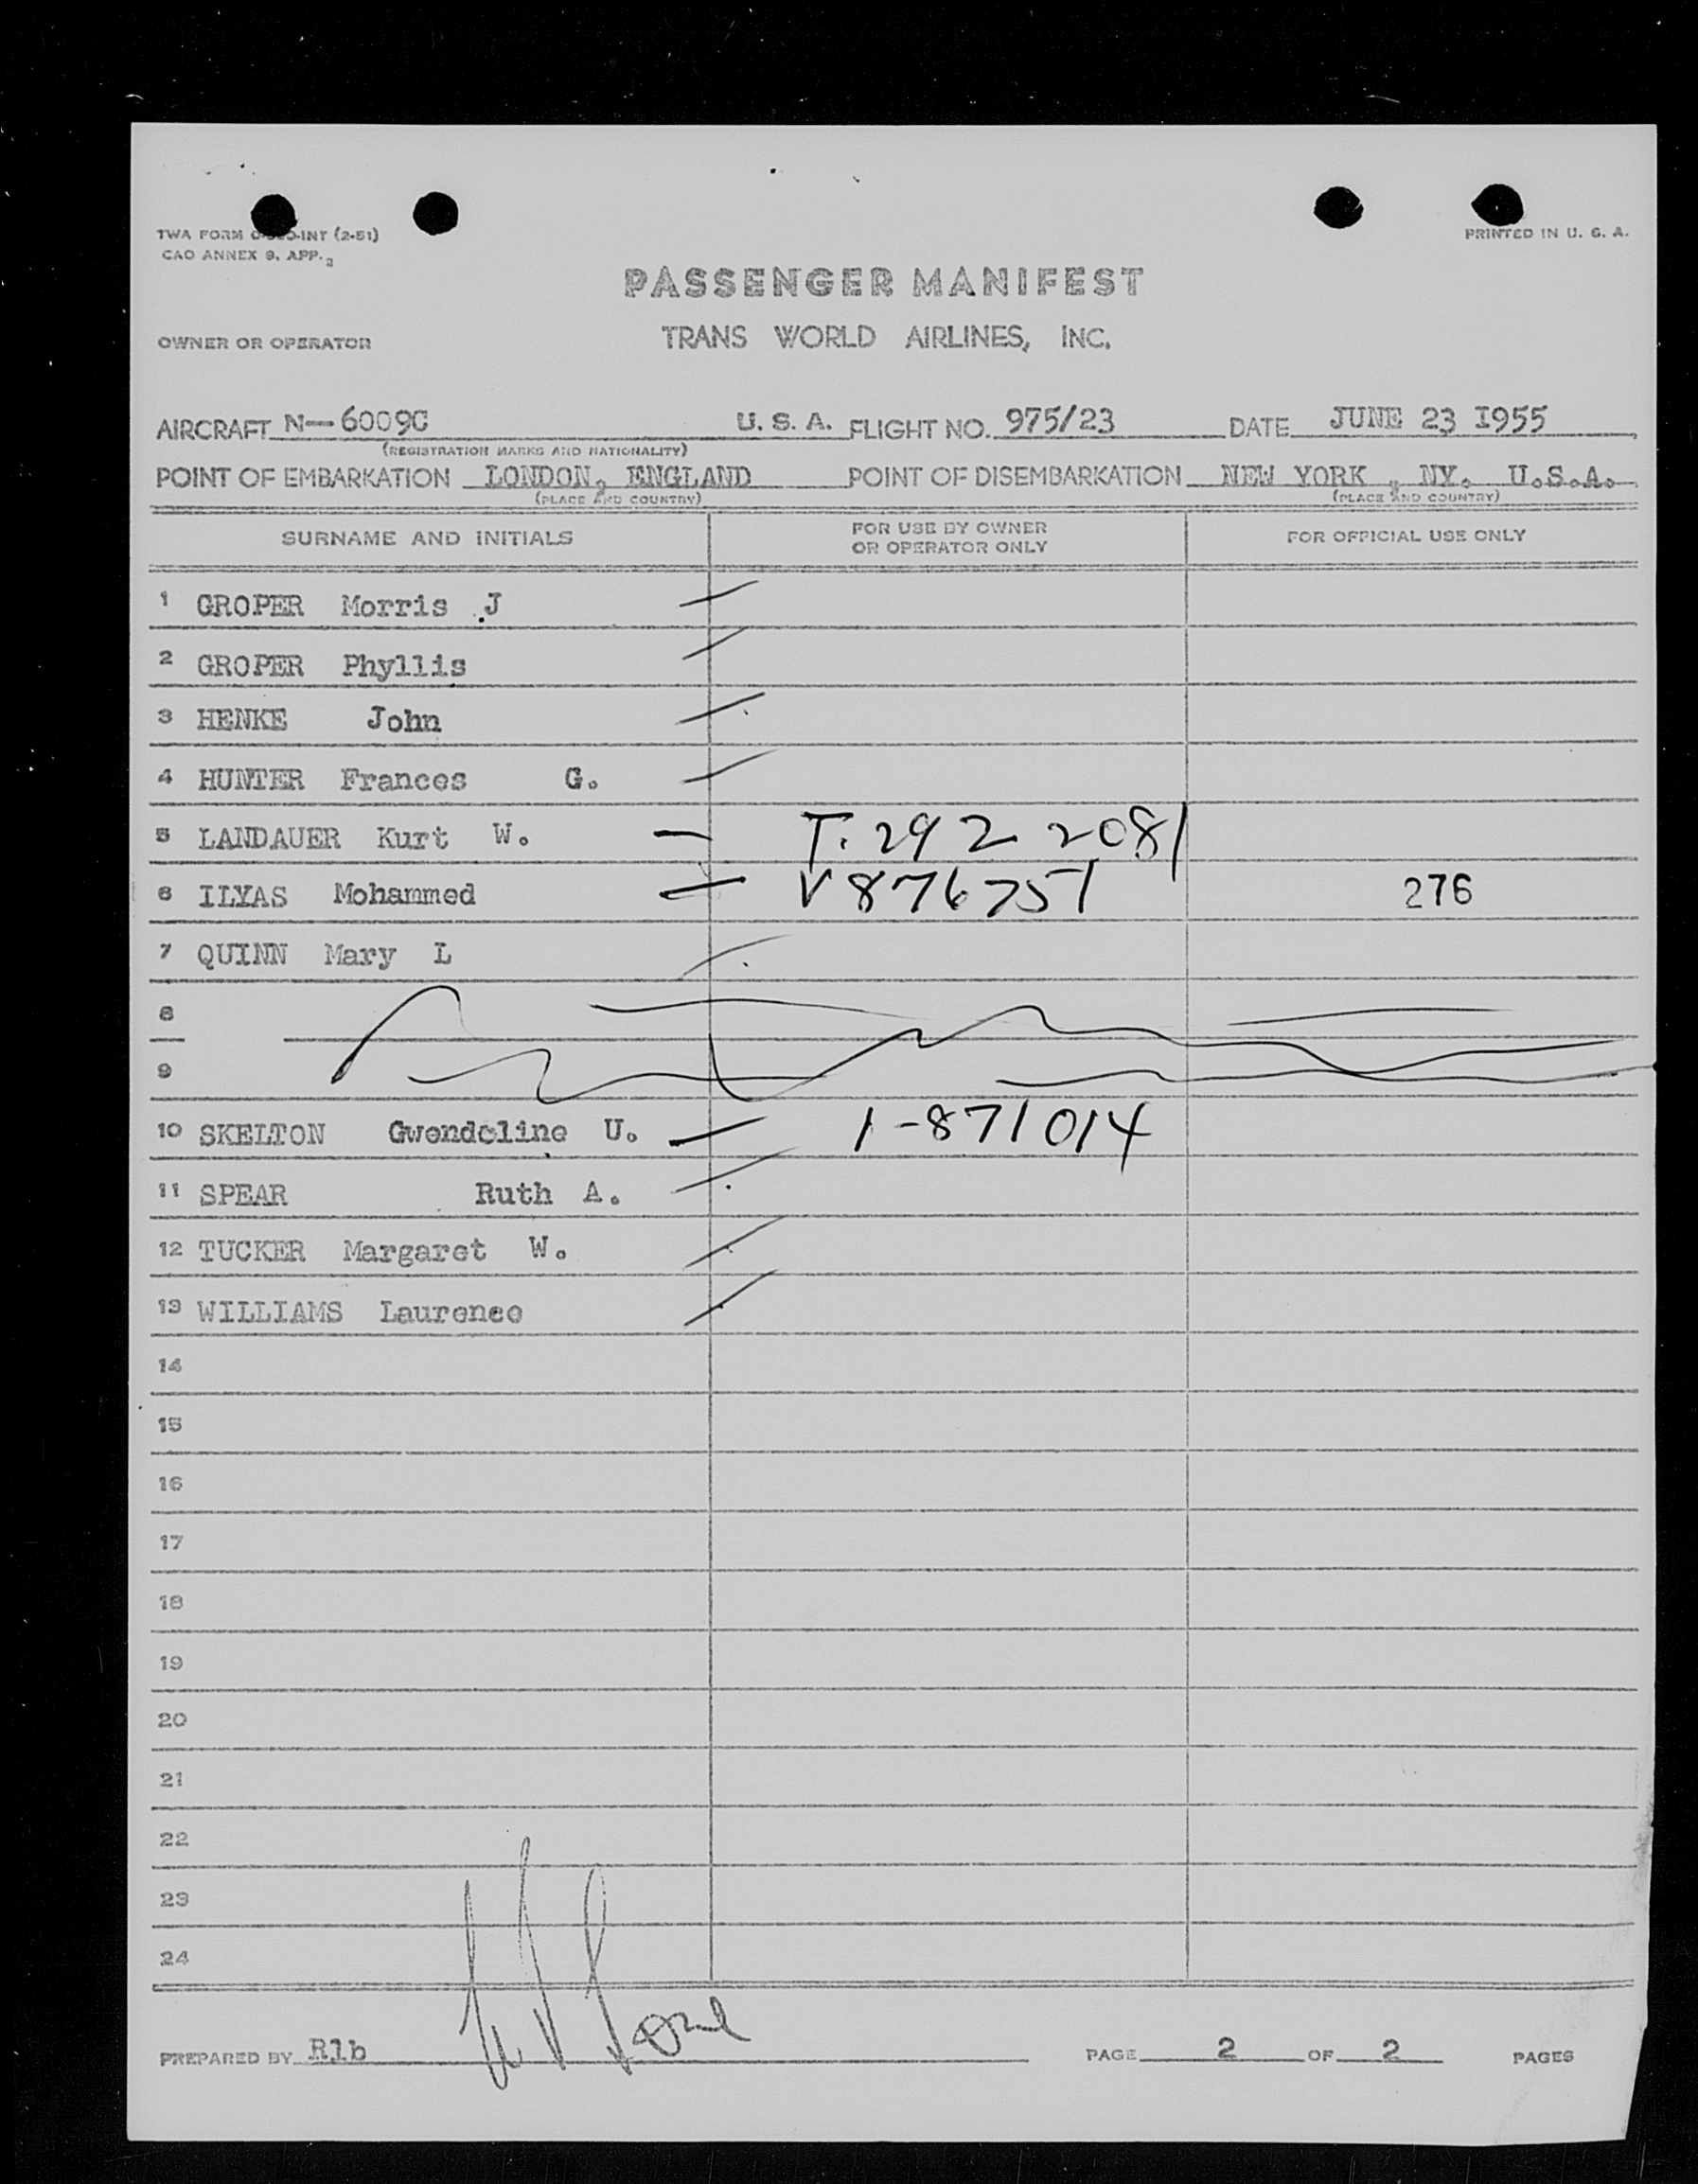 TWA FORM INT (2-51)
CAO ANNEX 9, APP. 2
PRINTED IN U. S. A.
PASSENGER MANIFEST
OWNER OR OPERATOR TRANS WORLD AIRLINES, INC.
AIRCRAFT N-6009C U. S. A. FLIGHT NO. 975/23 DATE JUNE 23 I955
(REGISTRATION MARKS AND NATIONALITY)
POINT OF EMBARKATION LONDON, ENGLAND POINT OF DISEMBARKATION NEW YORK , NY. U.S.A.
(PLACE AND COUNTRY) (PLACE AND COUNTRY)
SURNAME AND INITIALS FOR USE BY OWNER OR OPERATOR ONLY FOR OFFICIAL USE ONLY
1 GROPER Morris J
2 GROPER Phyllis
3 HENKE John
4 HUNTER Frances G.
5 LANDAUER Kurt W. T. 292 2081
6 ILYAS Mohammed V 876751 276
7 QUINN Mary L
8
9
10 SKELTON Gwendoline U. 1-871014
11 SPEAR Ruth A.
12 TUCKER Margaret W.
13 WILLIAMS Laurence
14
15
16
17
18
19
20
21
22
23
24
PREPARED BY Rlb PAGE 2 OF 2 PAGES